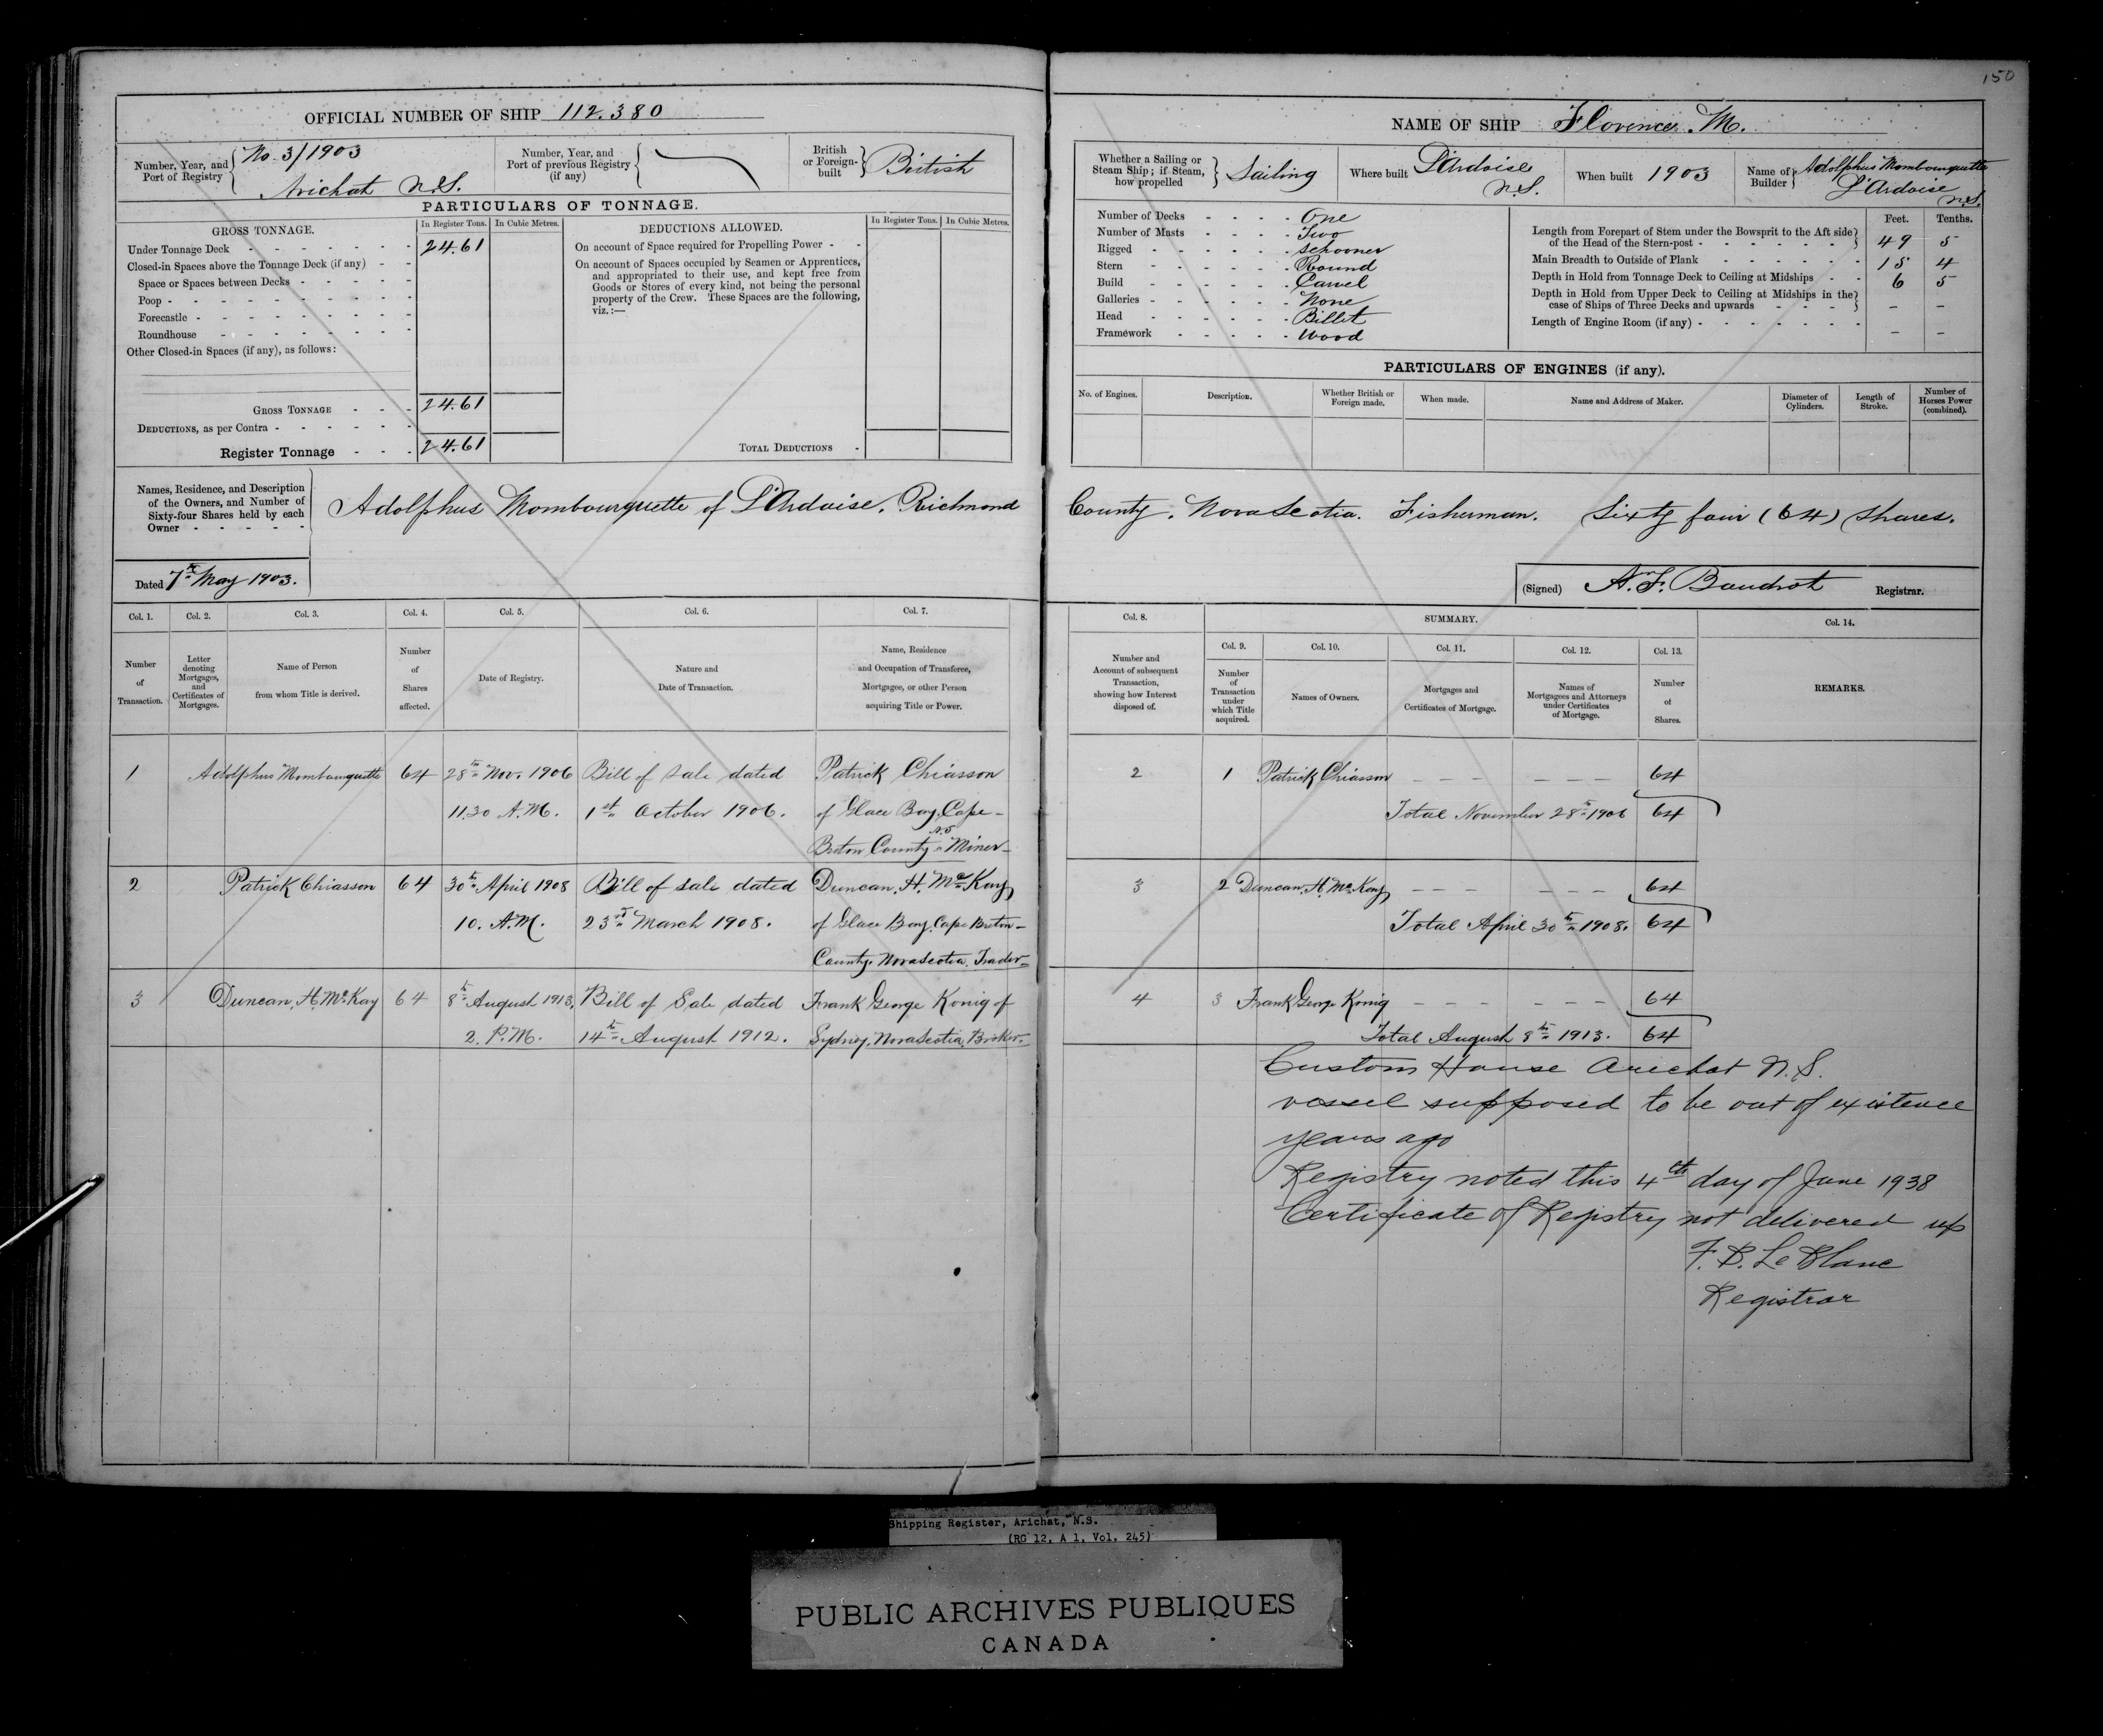 150
OFFICIAL NUMBER OF SHIP 112.380
Number, Year, and Port of Registry
No 3/1903
Arichat N.S.
Number, Year, and Port of previous Registry (if any)
British or Foreign-built
British
PARTICULARS OF TONNAGE.
GROSS TONNAGE.
In Register Tons.
In Cubic Metres.
Under Tonnage Deck 24.61
Closed-in Spaces above the Tonnage Deck (if any)
Space or Spaces between Decks
Poop
Forecastle
Roundhouse
Other Closed-in Spaces (if any), as follows:
GROSS TONNAGE 24.61
DEDUCTIONS, as per Contra
Register Tonnage 24.61
DEDUCTIONS ALLOWED.
In Register Tons.
In Cubic Metres.
On account of Space required for Propelling Power
On account of Spaces occupied by Seamen or Apprentices,
and appropriated to their use, and kept free from
Goods or Stores of every kind, not being the personal
property of the Crew. These Spaces are the following,
viz.:—
TOTAL DEDUCTIONS
NAME OF SHIP Florence. M.
Whether a Sailing or Steam Ship; if Steam, how propelled
Sailing
Where built
L'Ardoise
N.S.
When built 1903
Name of Builder
Adolphus Mombourquette
L'Ardoise
N.S.
Number of Decks One
Number of Masts Two
Rigged Schooner
Stern Round
Build Carvel
Galleries None
Head Billet
Framework Wood
Feet. Tenths.
Length from Forepart of Stem under the Bowsprit to the Aft side
of the Head of the Stern-post 49 5
Main Breadth to Outside of Plank 15 4
Depth in Hold from Tonnage Deck to Ceiling at Midships 6 5
Depth in Hold from Upper Deck to Ceiling at Midships in the
case of Ships of Three Decks and upwards – –
Length of Engine Room (if any) – –
PARTICULARS OF ENGINES (if any).
No. of Engines.
Description.
Whether British or Foreign made.
When made.
Name and Address of Maker.
Diameter of Cylinders.
Length of Stroke.
Number of Horses Power (combined).
Names, Residence, and Description
of the Owners, and Number of
Sixty-four Shares held by each
Owner
Adolphus Mombourquette of L'Ardoise. Richmond County. Nova Scotia. Fisherman. Sixty four (64) Shares.
Dated 7th May 1903.
(Signed) A. F. Baudrot Registrar.
Col. 1.
Col. 2.
Col. 3.
Col. 4.
Col. 5.
Col. 6.
Col. 7.
Number of Transaction.
Letter denoting Mortgages, and Certificates of Mortgages.
Name of Person from whom Title is derived.
Number of Shares affected.
Date of Registry.
Nature and Date of Transaction.
Name, Residence and Occupation of Transferee, Mortgagee, or other Person acquiring Title or Power.
Col. 8.
SUMMARY.
Col. 9.
Col. 10.
Col. 11.
Col. 12.
Col. 13.
Col. 14.
Number and Account of subsequent Transaction, showing how Interest disposed of.
Number of Transaction under which Title acquired.
Names of Owners.
Mortgages and Certificates of Mortgage.
Names of Mortgagees and Attorneys under Certificates of Mortgage.
Number of Shares.
REMARKS.
1 Adolphus Mombourquette 64 28th Nov. 1906 Bill of Sale dated Patrick Chiasson
11.30 A.M. 1st October 1906. of Glace Bay, Cape-
Breton County N.S Miner
2 1 Patrick Chiasson – – – – – – 64
Total November 28th 1906 64
2 Patrick Chiasson 64 30th April 1908 Bill of Sale dated Duncan. H. McKay
10. A.M. 23rd March 1908. of Glace Bay. Cape Breton
County. Nova Scotia. Trader
3 2 Duncan. H. McKay – – – – – – 64
Total April 30th 1908. 64
3 Duncan. H. McKay 64 8th August 1913. Bill of Sale dated Frank George Konig of
2. P.M. 14th August 1912. Sydney. Nova Scotia. Broker
4 3 Frank George Konig – – – – – – 64
Total August 8th 1913. 64
Customs House Arichat N.S.
vessel supposed to be out of existence
years ago
Registry noted this 4th day of June 1938
Certificate of Registry not delivered up
F. D. Le Blanc
Registrar
Shipping Register, Arichat, N.S.
(RG 12, A 1, Vol. 245)
PUBLIC ARCHIVES PUBLIQUES
CANADA